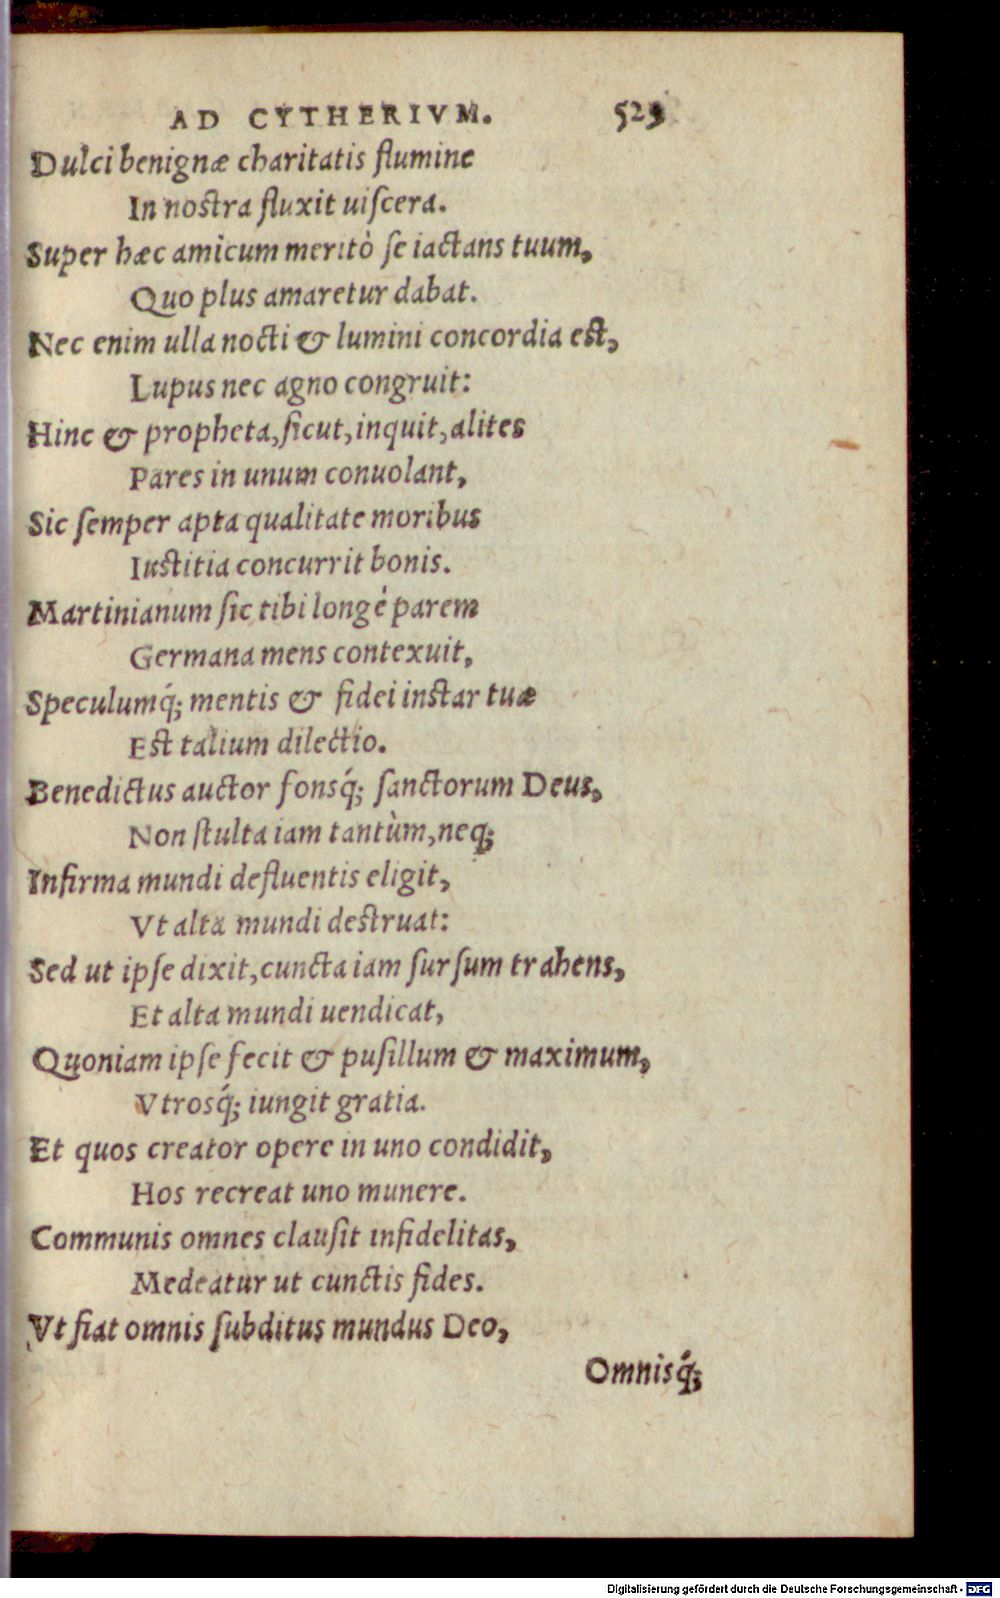 AD CYTHERIVM. 529
Dulci benignæ charitatis flumine
In nostra fluxit uiſcera.
Super hæc amicum meritò ſe iactans tuum,
Quo plus amaretur dabat.
Nec enim ulla nocti & lumini concordia est,
Lupus nec agno congruit:
Hinc & propheta, ſicut, inquit, alites
Pares in unum conuolant,
Sic ſemper apta qualitate moribus
Iustitia concurrit bonis.
Martinianum ſic tibi longé parem
Germana mens contexuit,
Speculumq́; mentis & fidei instar tuæ
Est talium dilectio.
Benedictus auctor fonsq́; ſanctorum Deus,
Non ſtulta iam tantùm, neq;
Infirma mundi defluentis eligit,
Vt alta mundi destruat:
Sed ut ipſe dixit, cuncta iam ſurſum trahens,
Et alta mundi uendicat,
Quoniam ipſe fecit & puſillum & maximum,
Vtrosq́; iungit gratia.
Et quos creator opere in uno condidit,
Hos recreat uno munere.
Communis omnes clauſit infidelitas,
Medeatur ut cunctis fides.
Vt fiat omnis ſubditus mundus Deo,
Omnisq́;
Digitalisierung gefördert durch die Deutsche Forschungsgemeinschaft - DFG